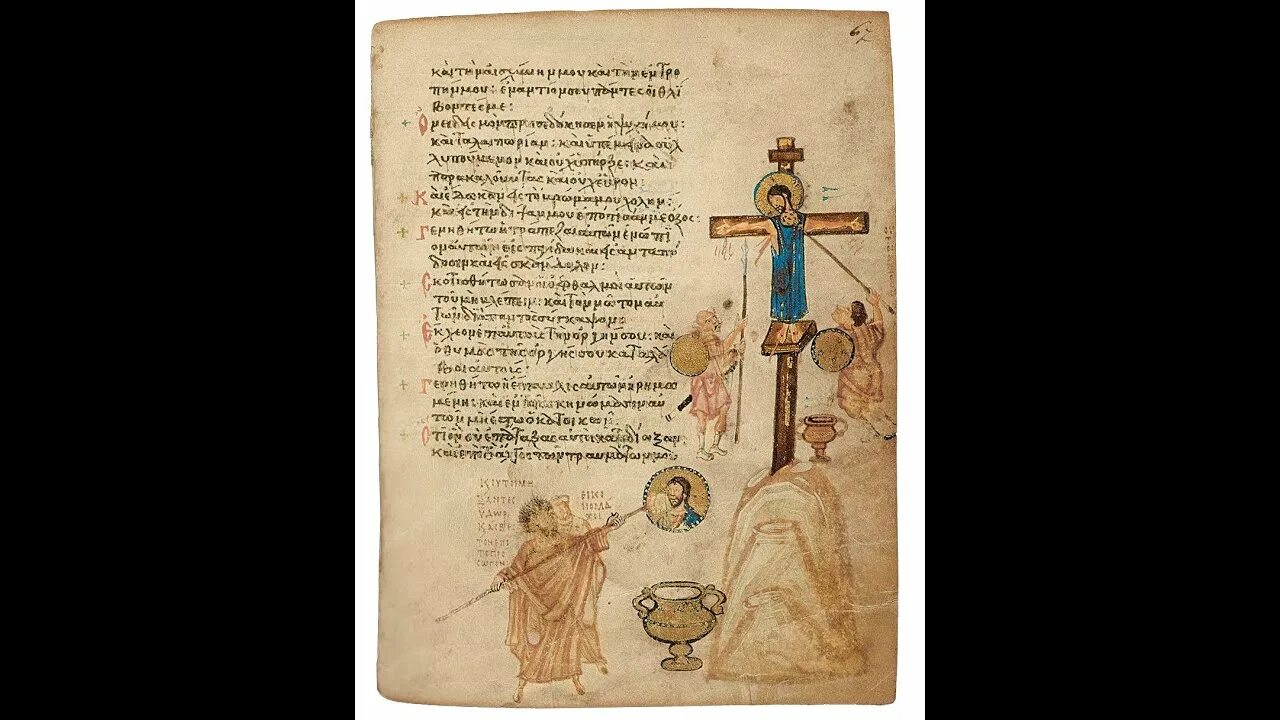 καὶ τὴν αἰσχύνην μου καὶ τὴν ἐντρο
πήν μου: ἐναντίον σου πάντες οἱ θλί
βοντές με:
Ὀνειδισμὸν προσεδόκησεν ἡ ψυχή μου:
καὶ ταλαιπωρίαν: καὶ ὑπέμεινα συλ
λυπούμενον καὶ οὐχ ὑπῆρξε: καὶ
παρακαλοῦντας καὶ οὐχ εὗρον:
Καὶ ἔδωκαν εἰς τὸ βρῶμά μου χολήν:
καὶ εἰς τὴν δίψαν μου ἐπότισάν με ὄξος:
Γενηθήτω ἡ τράπεζα αὐτῶν ἐνώπι
ον αὐτῶν εἰς παγίδα καὶ εἰς ἀνταπό
δοσιν καὶ εἰς σκάνδαλον:
Σκοτισθήτωσαν οἱ ὀφθαλμοὶ αὐτῶν
τοῦ μὴ βλέπειν: καὶ τὸν νῶτον αὐ
τῶν διὰ παντὸς σύγκαμψον
Ἔκχεον ἐπ' αὐτοὺς τὴν ὀργήν σου: καὶ
ὁ θυμὸς τῆς ὀργῆς σου καταλά
βοι αὐτούς:
Γενηθήτω ἡ ἔπαυλις αὐτῶν ἠρημω
μένη: καὶ ἐν τοῖς σκηνώμασιν αὐ
τῶν μὴ ἔστω ὁ κατοικῶν
Ὅτι ὃν σὺ ἐπάταξας αὐτοὶ κατεδίωξαν:
καὶ ἐπὶ τὸ ἄλγος τῶν τραυμάτων μου
ΥΔΩΡ